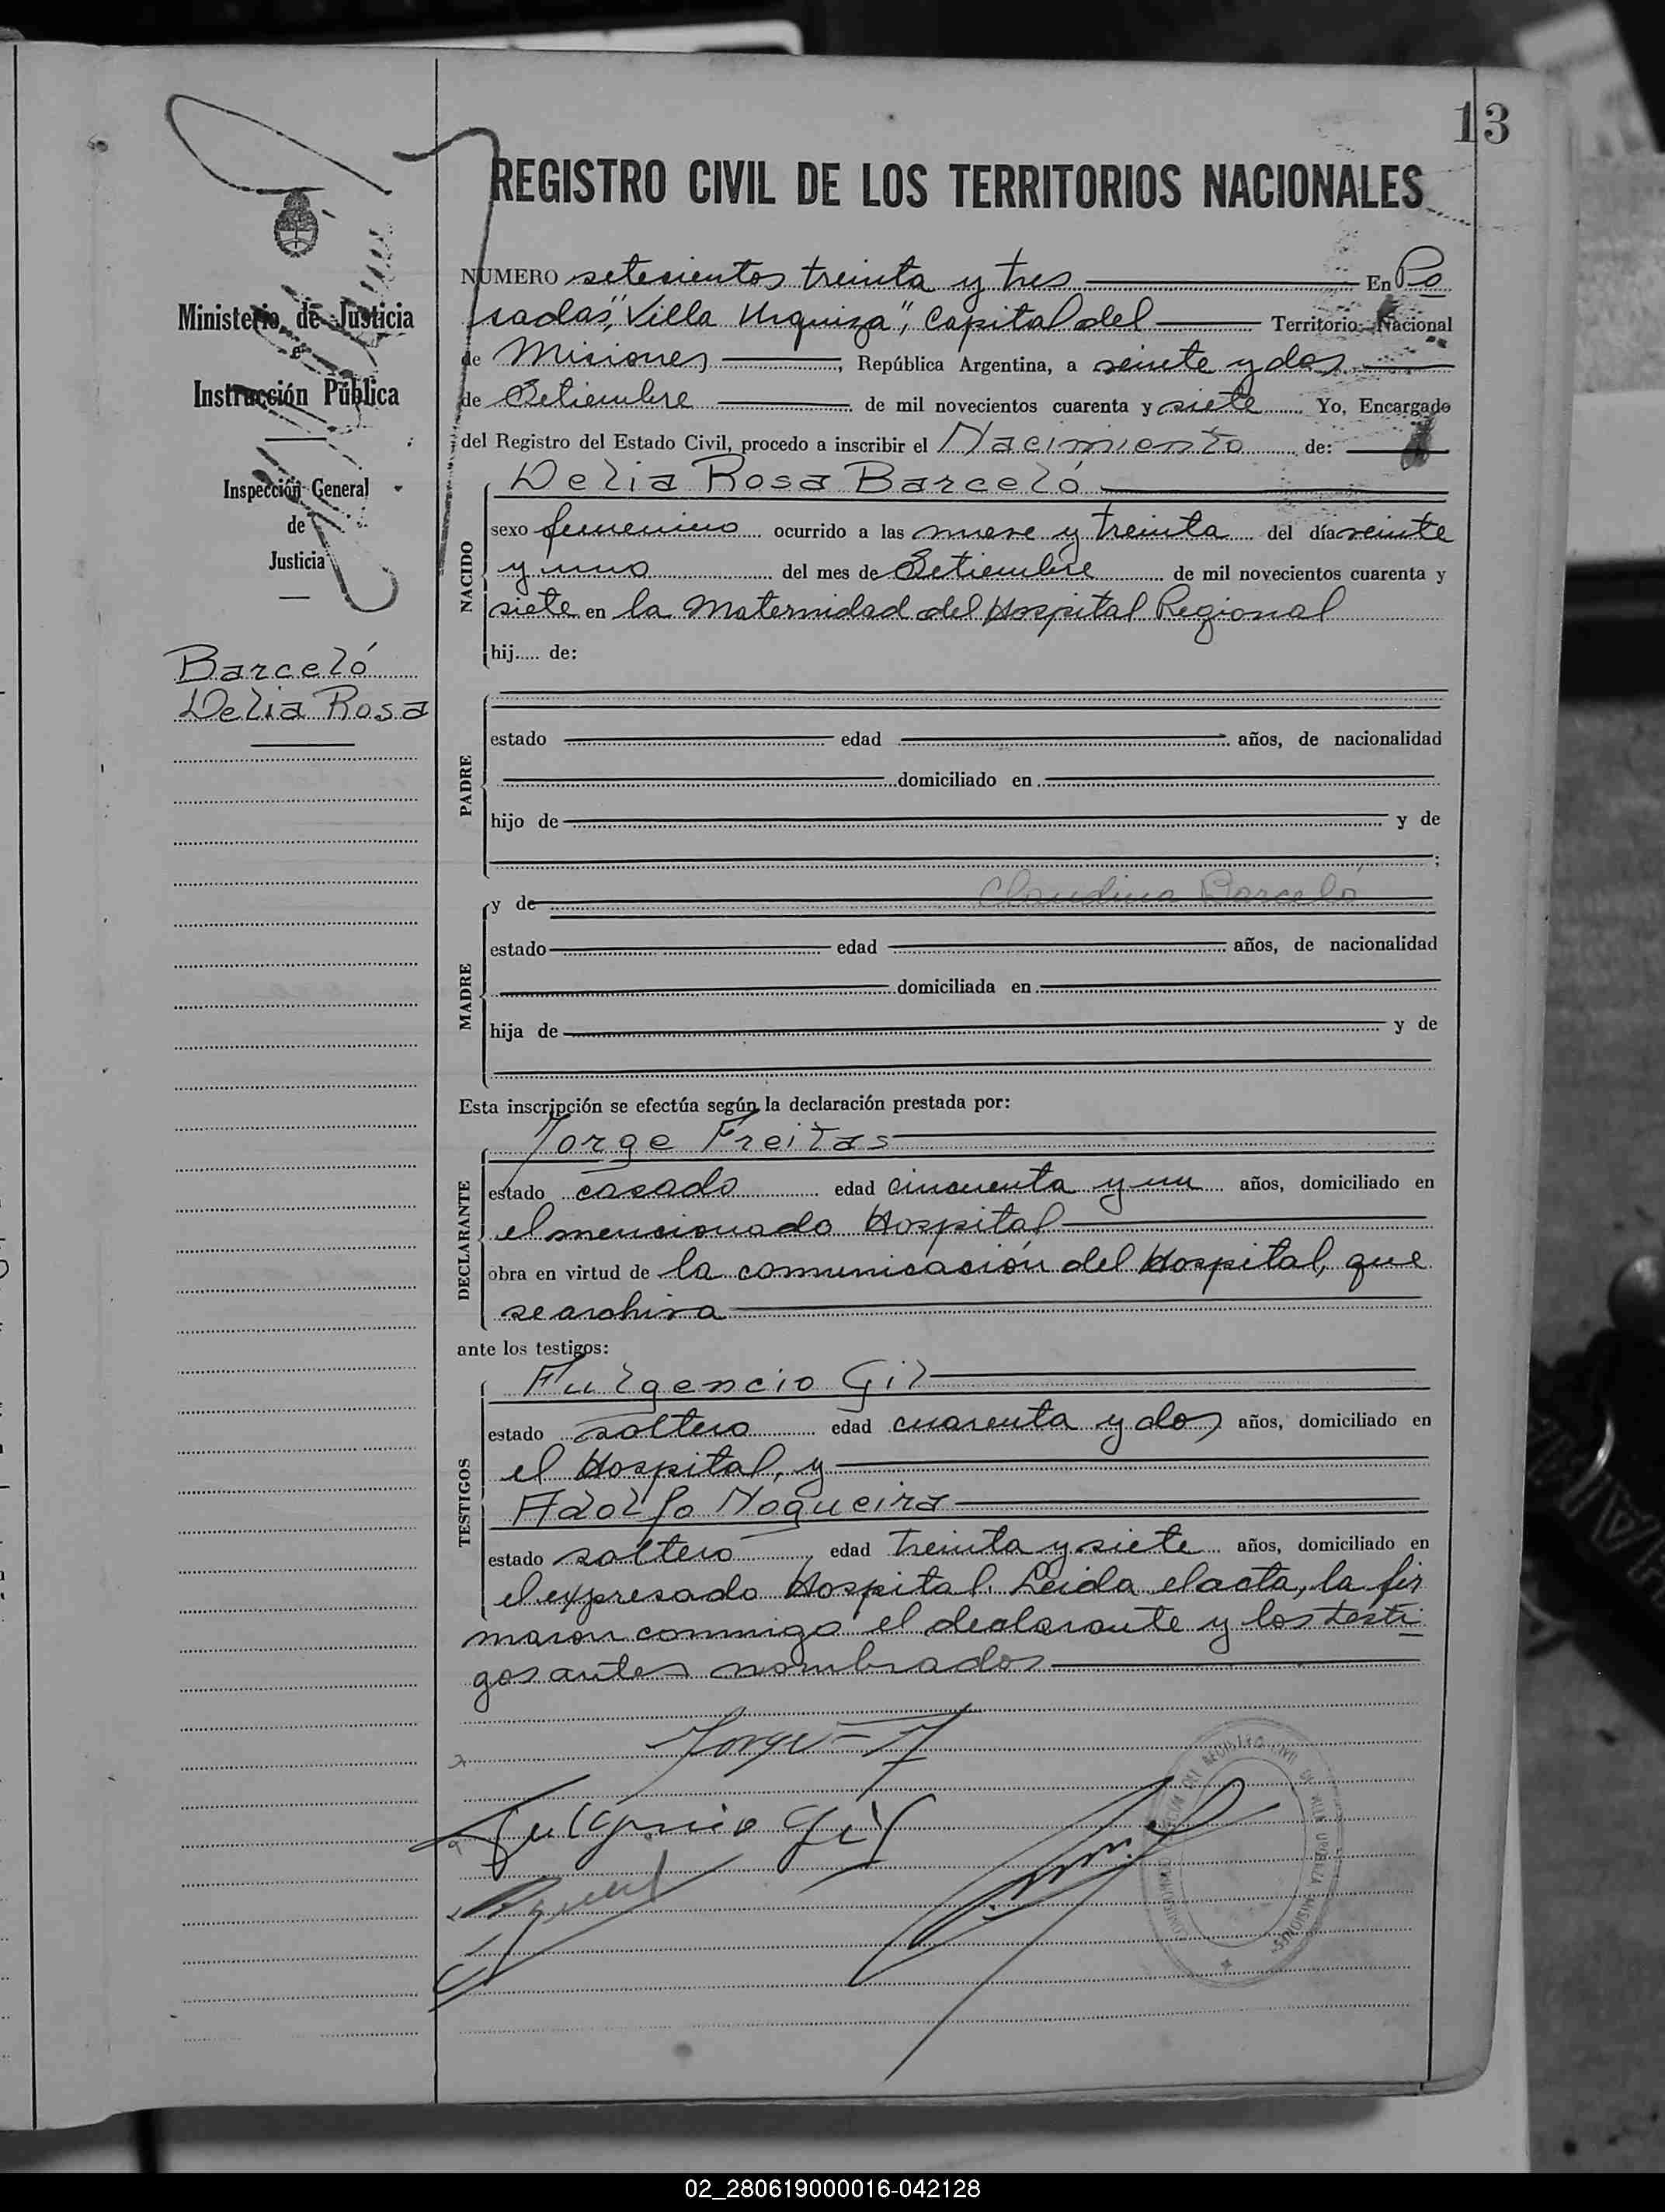 13
REGISTRO CIVIL DE LOS TERRITORIOS NACIONALES
Ministerio de Justicia
e
Instrucción Pública
Inspección General
de
Justicia
Barceló
Delia Rosa
NUMERO setecientos treinta y tres En Po
sadas, "Villa Urquiza", Capital del Territorio Nacional
de Misiones, República Argentina, a veinte y dos
de Setiembre de mil novecientos cuarenta y siete Yo, Encargado
del Registro del Estado Civil, procedo a inscribir el Nacimiento de:
NACIDO
Delia Rosa Barceló
sexo femenino ocurrido a las nueve y treinta del día veinte
y uno del mes de Setiembre de mil novecientos cuarenta y
siete en la Maternidad del Hospital Regional
hij..... de:
PADRE
estado edad años, de nacionalidad
domiciliado en
hijo de y de
;
MADRE
y de Claudina Barceló
estado edad años, de nacionalidad
domiciliada en
hija de y de
Esta inscripción se efectúa según la declaración prestada por:
DECLARANTE
Jorge Freitas
estado casado edad cincuenta y un años, domiciliado en
el mencionado Hospital
obra en virtud de la comunicación del Hospital, que
se archiva
ante los testigos:
TESTIGOS
Fulgencio Gil
estado soltero edad cuarenta y dos años, domiciliado en
el Hospital, y
Adolfo Nogueira
estado soltero edad treinta y siete años, domiciliado en
el expresado Hospital. Leida el acta, la fir
maron conmigo el declarante y los testi
gos antes nombrados
Jorge F
Fulgencio Gil
DEL REGISTRO CIVIL DE VILLA URQUIZA MISIONES
02_280619000016-042128